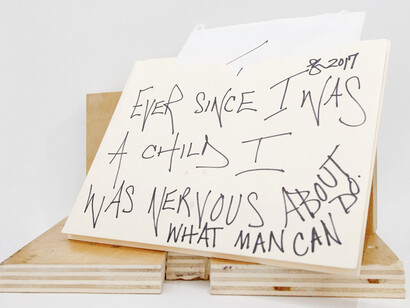 8-2017
EVER SINCE I WAS
A CHILD I
WAS NERVOUS ABOUT
WHAT MAN CAN DO.